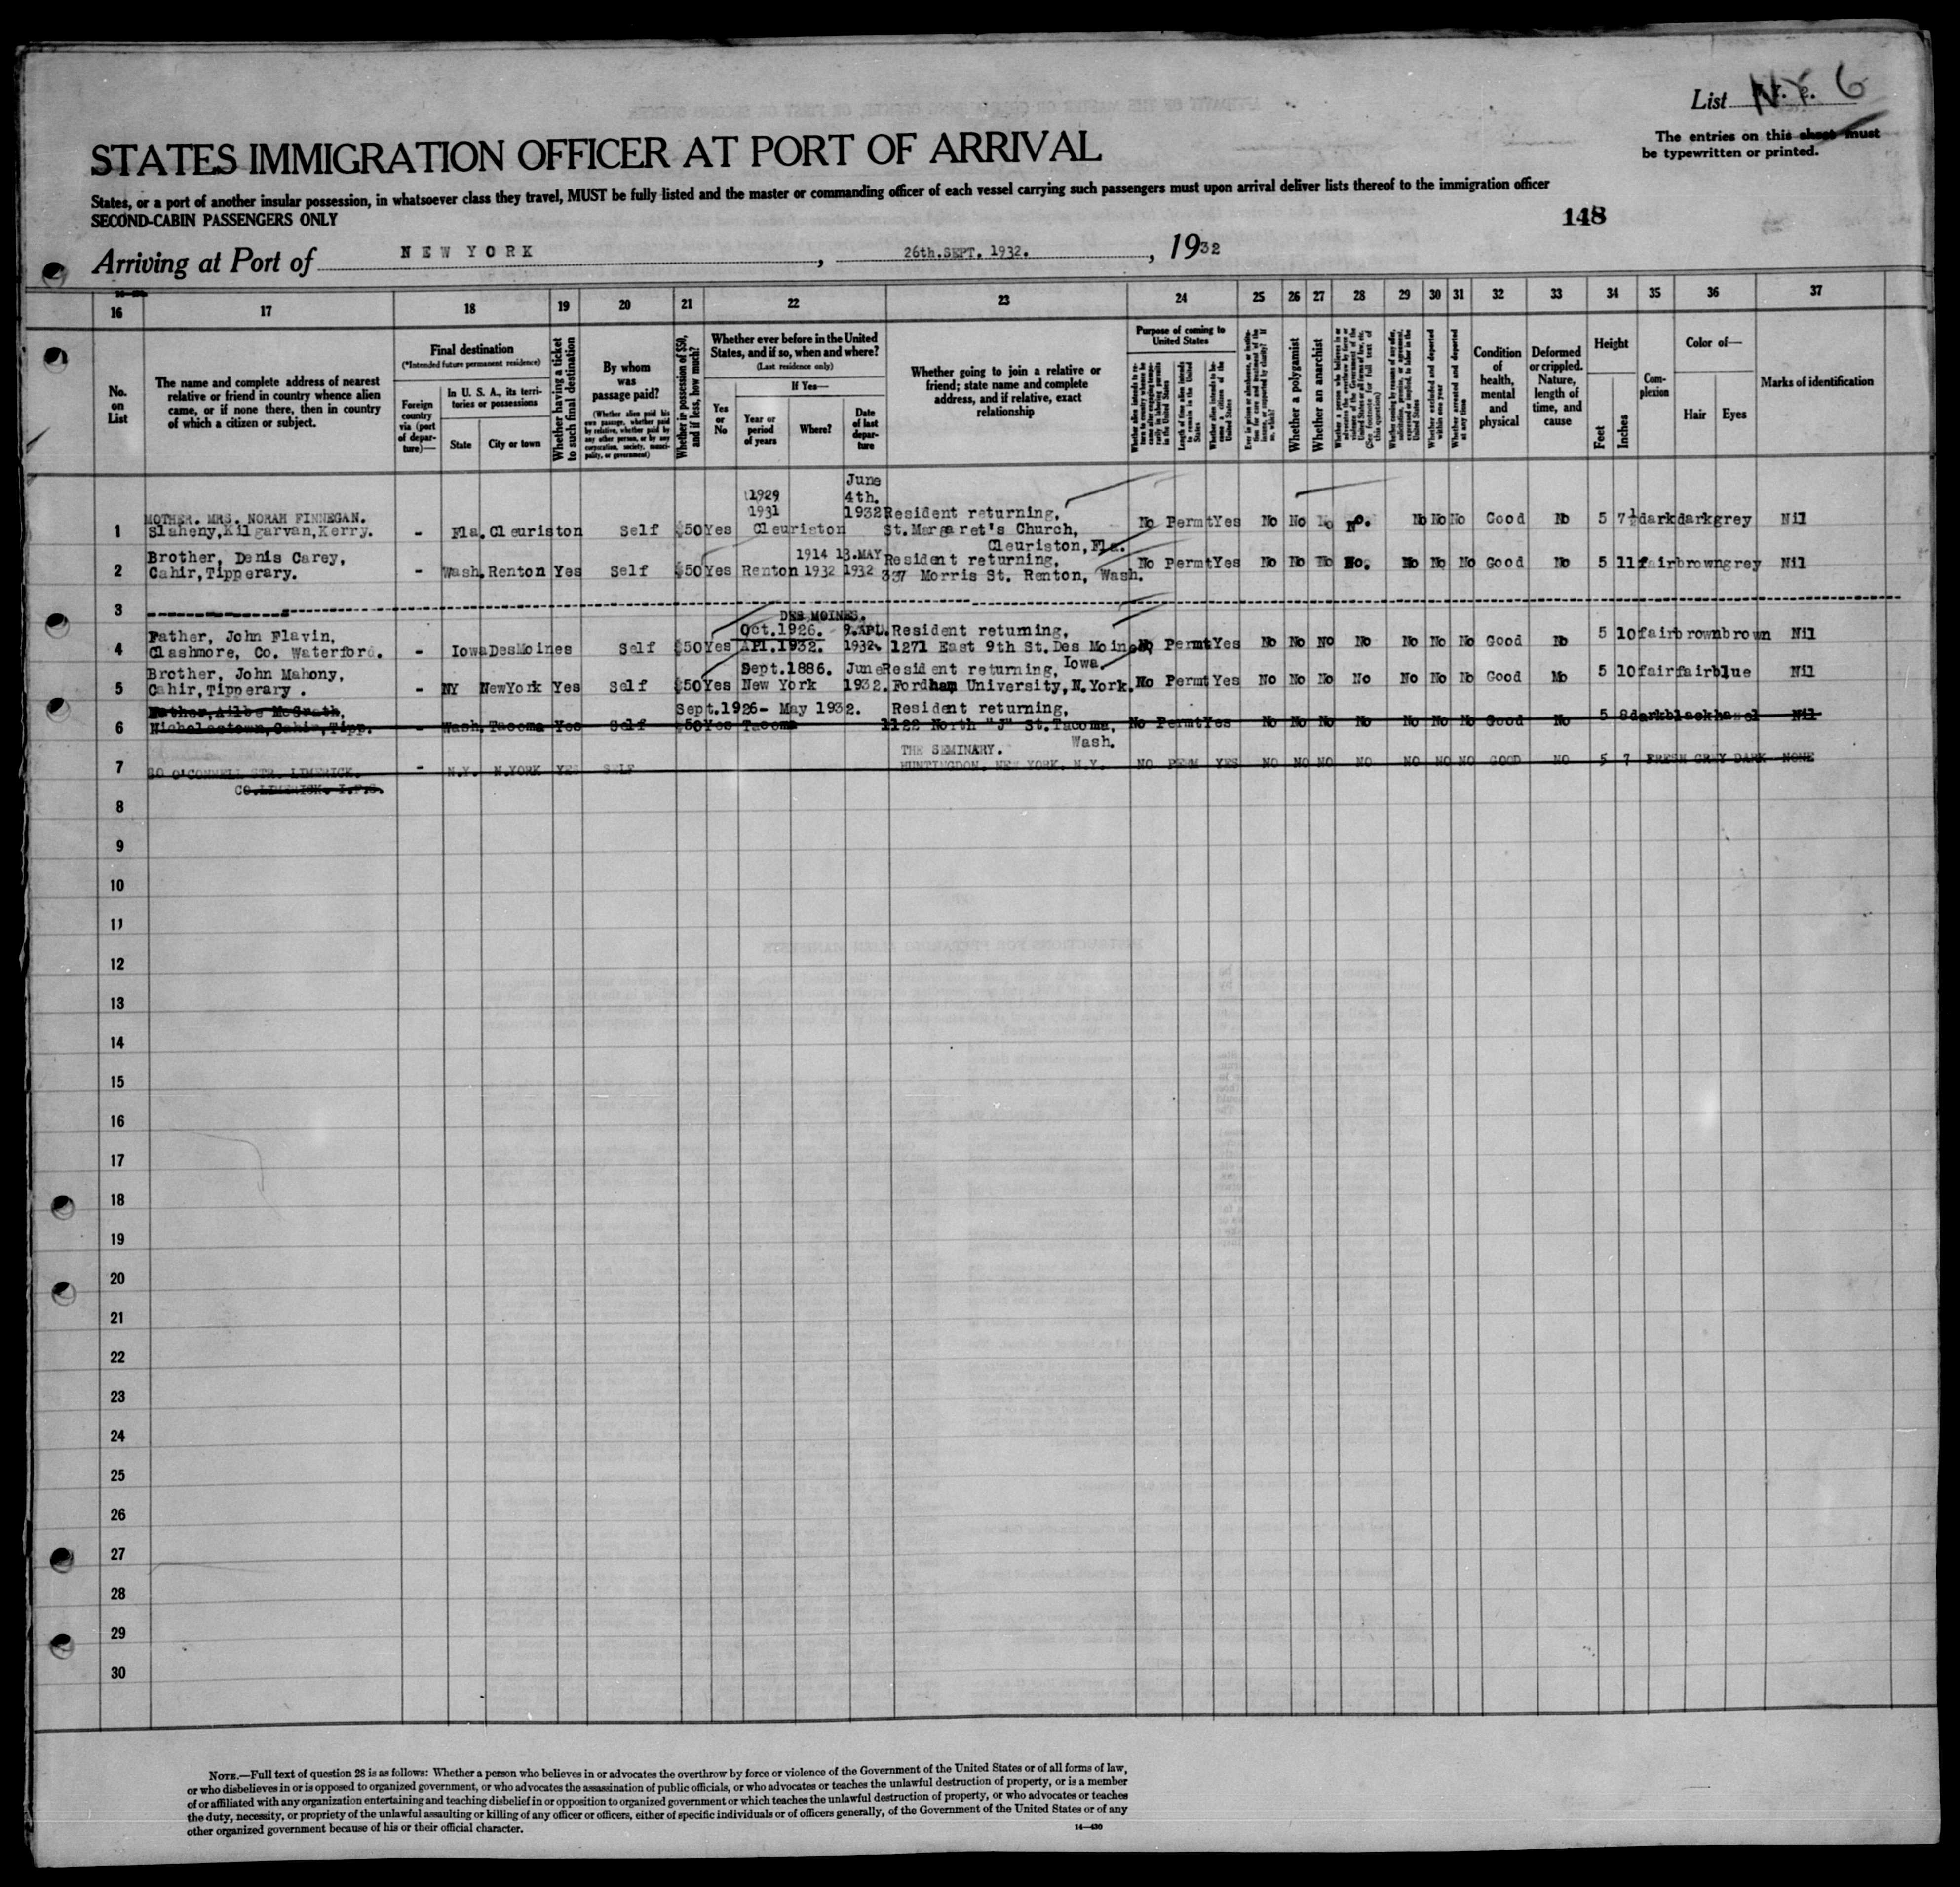 List N.Y. 6
The entries on this sheet must
be typewritten or printed.
STATES IMMIGRATION OFFICER AT PORT OF ARRIVAL
States, or a port of another insular possession, in whatsoever class they travel, MUST be fully listed and the master or commanding officer of each vessel carrying such passengers must upon arrival deliver lists thereof to the immigration officer
SECOND-CABIN PASSENGERS ONLY
148
Arriving at Port of NEW YORK, 26th.SEPT. 1932., 1932
16 17 18 19 20 21 22 23 24 25 26 27 28 29 30 31 32 33 34 35 36 37
No. on List
The name and complete address of nearest relative or friend in country whence alien came, or if none there, then in country of which a citizen or subject.
Final destination
(*Intended future permanent residence)
Foreign country via (port of departure)—
In U. S. A., its territories or possessions
State
City or town
Whether having a ticket to such final destination
By whom was passage paid?
(Whether alien paid his own passage, whether paid by relative, whether paid by any other person, or by any corporation, society, municipality, or government)
Whether in possession of $50, and if less, how much?
Whether ever before in the United States, and if so, when and where?
(Last residence only)
Yes or No
If Yes—
Year or period of years
Where?
Date of last departure
Whether going to join a relative or friend; state name and complete address, and if relative, exact relationship
Purpose of coming to United States
Length of time alien intends to remain in the United States
Whether alien intends to become a citizen of the United States
Whether a polygamist
Whether an anarchist
Whether excluded and deported within one year
Whether arrested and deported at any time
Condition of health, mental and physical
Deformed or crippled. Nature, length of time, and cause
Height
Feet
Inches
Complexion
Color of—
Hair
Eyes
Marks of identification
June
1929 4th.
MOTHER. MRS. NORAH FINNEGAN. 1931 1932 Resident returning,
1 Slaheny,Kilgarvan,Kerry. - Fla. Cleuriston Self $50 Yes Cleuriston St.Margaret's Church, No Permt Yes No No No No. No No No Good No 5 7½ dark dark grey Nil
Cleuriston, Fla.
Brother, Denis Carey, 1914 13.MAY Resident returning,
2 Cahir,Tipperary. - Wash. Renton Yes Self $50 Yes Renton 1932 1932 337 Morris St. Renton, Wash. No Permt Yes No No No No. No No No Good No 5 11 fair brown grey Nil
3
DES MOINES.
Father, John Flavin, Oct.1926. 9.APL. Resident returning,
4 Clashmore, Co. Waterford. - Iowa DesMoines Self $50 Yes APl.1932. 1932. 1271 East 9th St. Des Moines No Permt Yes No No No No No No No Good No 5 10 fair brown brown Nil
Iowa.
Brother, John Mahony, Sept.1886. June Resident returning,
5 Cahir,Tipperary. - NY NewYork Yes Self $50 Yes New York 1932. Fordham University, N.York. No Permt Yes No No No No No No No Good No 5 10 fair fair blue Nil
Father,Ailbe McGrath, Sept.1926- May 1932. Resident returning,
6 Nicholastown,Cahir,Tipp. - Wash. Tacoma Yes Self $50 Yes Tacoma 1122 North "J" St.Tacoma, No Permt Yes No No No No No No No Good No 5 8 dark black hazel Nil
Wash.
THE SEMINARY.
7 30 O'CONNELL STR. LIMERICK. - N.Y. N.YORK YES SELF HUNTINGDON. NEW YORK. N.Y. NO PERM YES NO NO NO NO NO NO NO GOOD NO 5 7 FRESH GREY DARK NONE
CO.LIMERICK. I.F.S.
8
9
10
11
12
13
14
15
16
17
18
19
20
21
22
23
24
25
26
27
28
29
30
NOTE.—Full text of question 28 is as follows: Whether a person who believes in or advocates the overthrow by force or violence of the Government of the United States or of all forms of law,
or who disbelieves in or is opposed to organized government, or who advocates the assassination of public officials, or who advocates or teaches the unlawful destruction of property, or is a member
of or affiliated with any organization entertaining and teaching disbelief in or opposition to organized government or which teaches the unlawful destruction of property, or who advocates or teaches
the duty, necessity, or propriety of the unlawful assaulting or killing of any officer or officers, either of specific individuals or of officers generally, of the Government of the United States or of any
other organized government because of his or their official character.
14—430